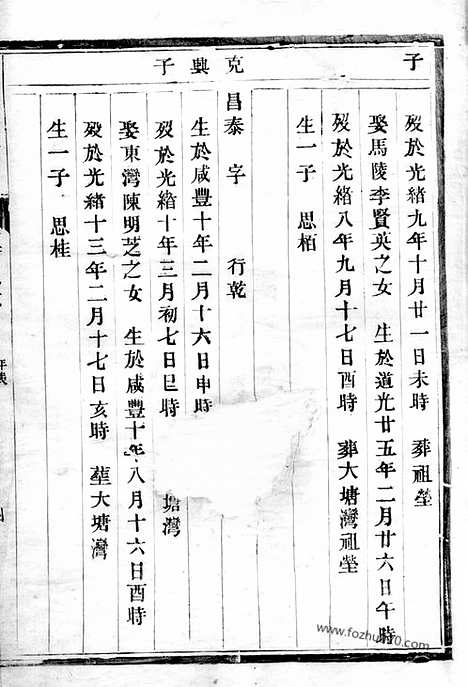 子
克興子
歿於光緒九年十月廿一日未時　葬祖塋
娶馬陵李賢英之女　生於道光廿五年二月廿六日午時
歿於光緒八年九月十七日酉時　葬大塘灣祖塋
生一子　思栢
昌泰字　行乾
生於咸豐十年二月十六日申時
歿於光緒十年三月初七日巳時　塘灣
娶東灣陳明芝之女　生於咸豐十年八月十六日酉時
歿於光緒十三年二月十七日亥時　塟大塘灣
生一子　思桂